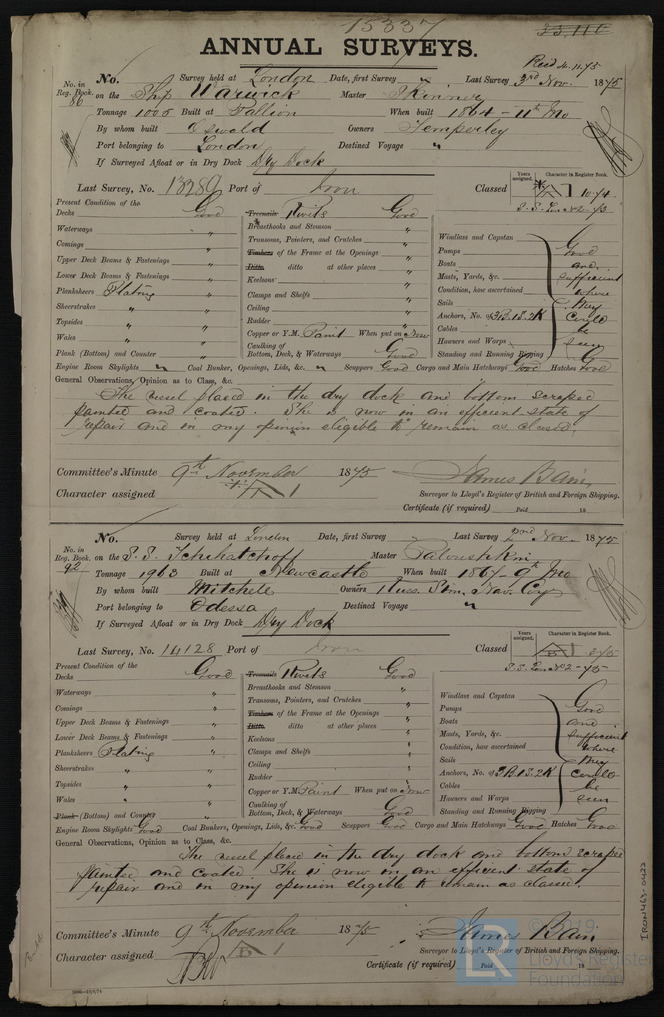 15337
ANNUAL SURVEYS.
Recd 4.11.75
No. Survey held at London Date, first Survey " Last Survey 3rd Nov. 1875
No. in Reg. Book. 86 on the Ship Warwick Master Skinner
Tonnage 1005 Built at Pallion When built 1864 - 11th Mo
By whom built Oswald Owners Temperley
Port belonging to London Destined Voyage "
If Surveyed Afloat or in Dry Dock Dry Dock
Last Survey, No. 13289 Port of Iron Classed
Years assigned. Character in Register Book.
A 1 10.74
S.S. Lon No 2 - 73
Present Condition of the
Decks Good
Waterways "
Comings "
Upper Deck Beams & Fastenings "
Lower Deck Beams & Fastenings "
Planksheers Plating "
Sheerstrakes "
Topsides "
Wales "
Plank (Bottom) and Counter "
Treenails Rivits Good
Breasthooks and Stemson "
Transoms, Pointers, and Crutches "
Timbers of the Frame at the Openings "
Ditto ditto at other places "
Keelsons "
Clamps and Shelfs "
Ceiling "
Rudder "
Copper or Y.M. Paint When put on Now
Caulking of Bottom, Deck, & Waterways Good
Windlass and Capstan
Pumps
Boats
Masts, Yards, &c.
Condition, how ascertained
Sails
Anchors, No. of 3B.1S.2K
Cables
Hawsers and Warps
Standing and Running Rigging
Good and sufficient where they could be seen
Good
Engine Room Skylights " Coal Bunker, Openings, Lids, &c. " Scuppers Good Cargo and Main Hatchways Good Hatches Good
General Observations, Opinion as to Class, &c.
The vessel placed in the dry dock and bottom scraped
painted and coated. She is now in an efficient state of
repair and in my opinion eligible to remain as classed.
Committee's Minute 9th November 1875 James Bain
Character assigned A 1 Surveyor to Lloyd's Register of British and Foreign Shipping.
Certificate (if required) Paid 18
No. Survey held at London Date, first Survey Last Survey 2nd Nov. 1875
No. in Reg. Book. 92 on the S.S. Tchihatchoff Master Paloushkin
Tonnage 1963 Built at Newcastle When built 1867 - 9th Mo
By whom built Mitchell Owners Russ. Stm. Nav. Coy
Port belonging to Odessa Destined Voyage "
If Surveyed Afloat or in Dry Dock Dry Dock
Last Survey, No. 14128 Port of Iron Classed
Years assigned. Character in Register Book.
S.S. Lon No 2 - 75
Present Condition of the
Decks Good
Waterways "
Comings "
Upper Deck Beams & Fastenings "
Lower Deck Beams & Fastenings "
Planksheers Plating "
Sheerstrakes "
Topsides "
Wales "
Plank (Bottom) and Counter "
Treenails Rivits Good
Breasthooks and Stemson "
Transoms, Pointers, and Crutches "
Timbers of the Frame at the Openings "
Ditto ditto at other places "
Keelsons "
Clamps and Shelfs "
Ceiling "
Rudder "
Copper or Y.M. Paint When put on Now
Caulking of Bottom, Deck, & Waterways Good
Windlass and Capstan
Pumps
Boats
Masts, Yards, &c.
Condition, how ascertained
Sails
Anchors, No. of 3B.1S.2K
Cables
Hawsers and Warps
Standing and Running Rigging
Good and sufficient where they could be seen
Good
Engine Room Skylights Good Coal Bunkers, Openings, Lids, &c. Good Scuppers Good Cargo and Main Hatchways Good Hatches Good
General Observations, Opinion as to Class, &c.
The vessel placed in the dry dock and bottom scraped
painted and coated. She is now in an efficient state of
repair and in my opinion eligible to remain as classed.
Committee's Minute 9th November 1875 James Bain
Character assigned Surveyor to Lloyd's Register of British and Foreign Shipping.
Certificate (if required) Paid 18
IRON463-0422
© 2019
Lloyd's Register
Foundation